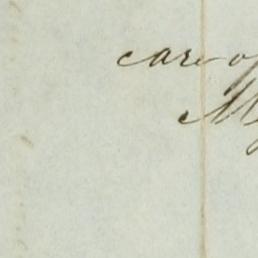 care of
M